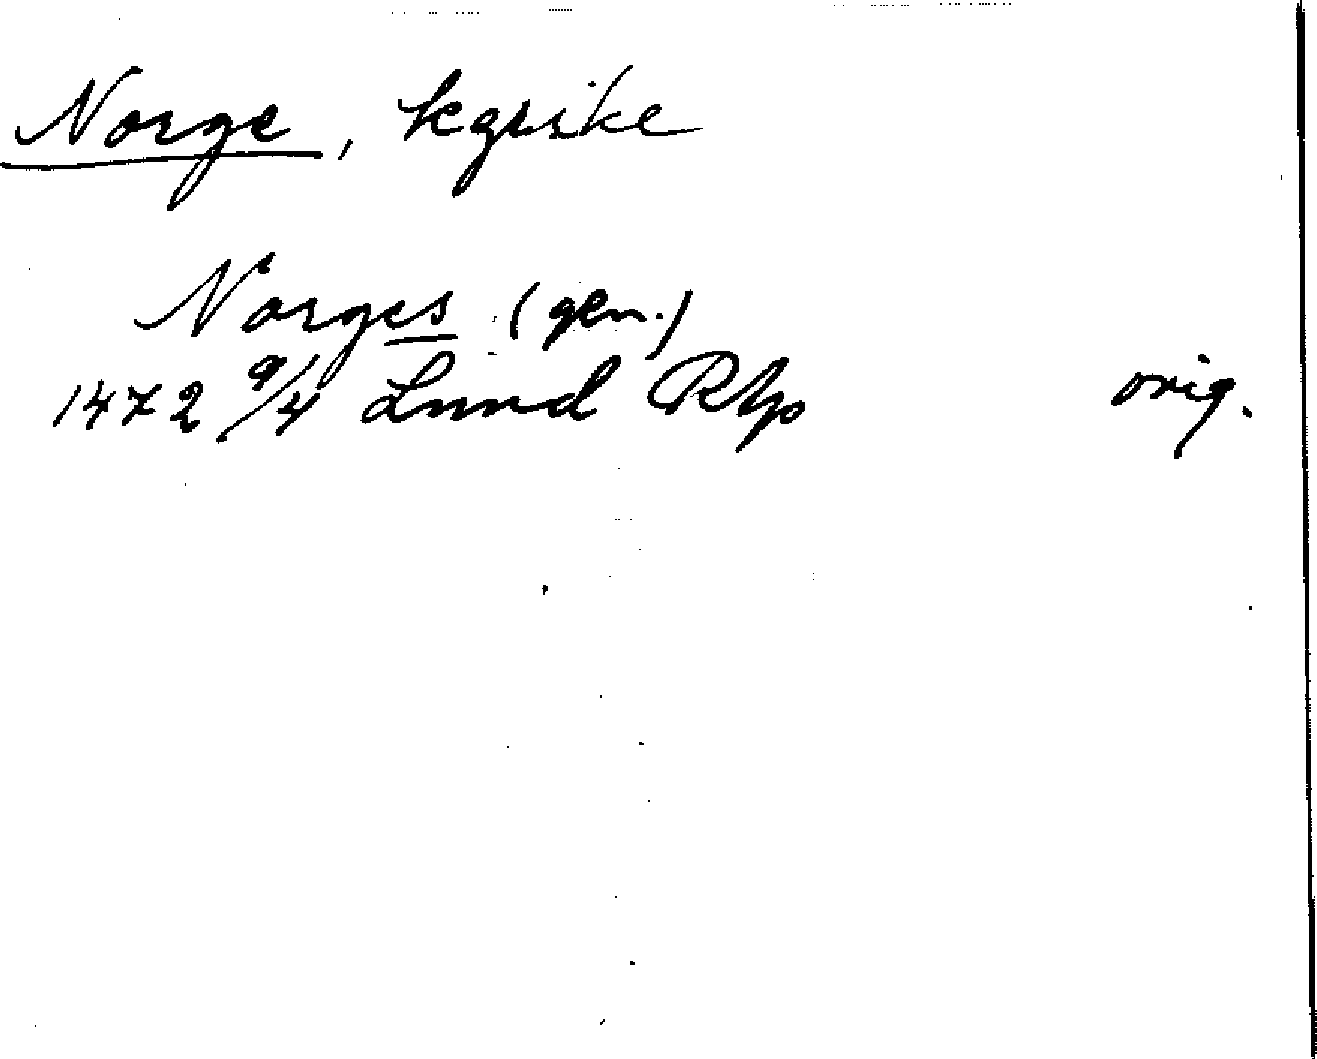 Norge, kgrike
Norges (gen.)
1472 9/4 Lund Rhp orig.